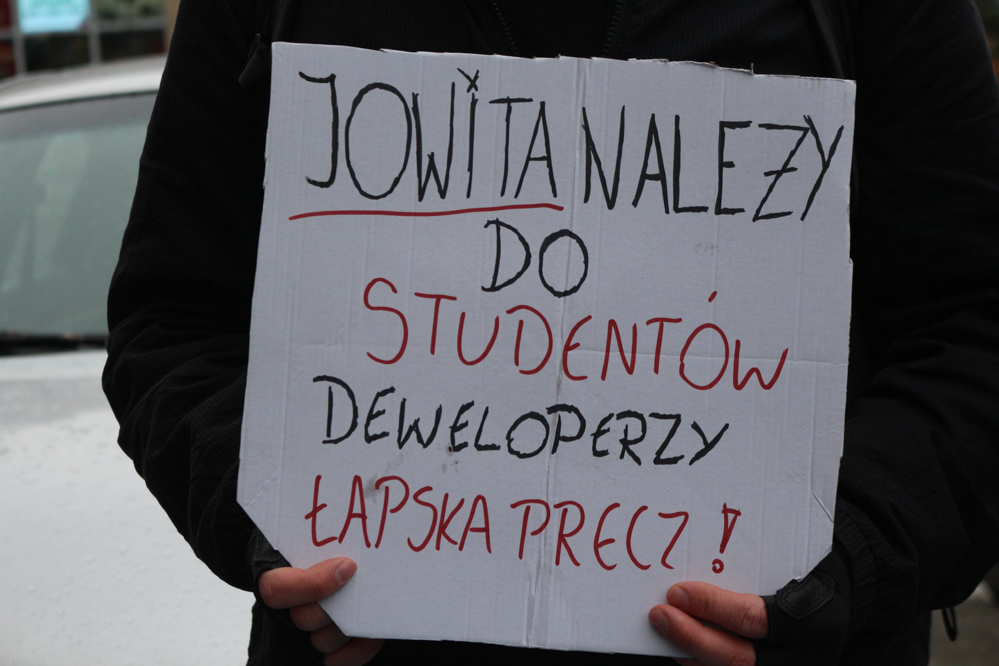 JOWITA NALEŻY
DO
STUDENTÓW
DEWELOPERZY
ŁAPSKA PRECZ!